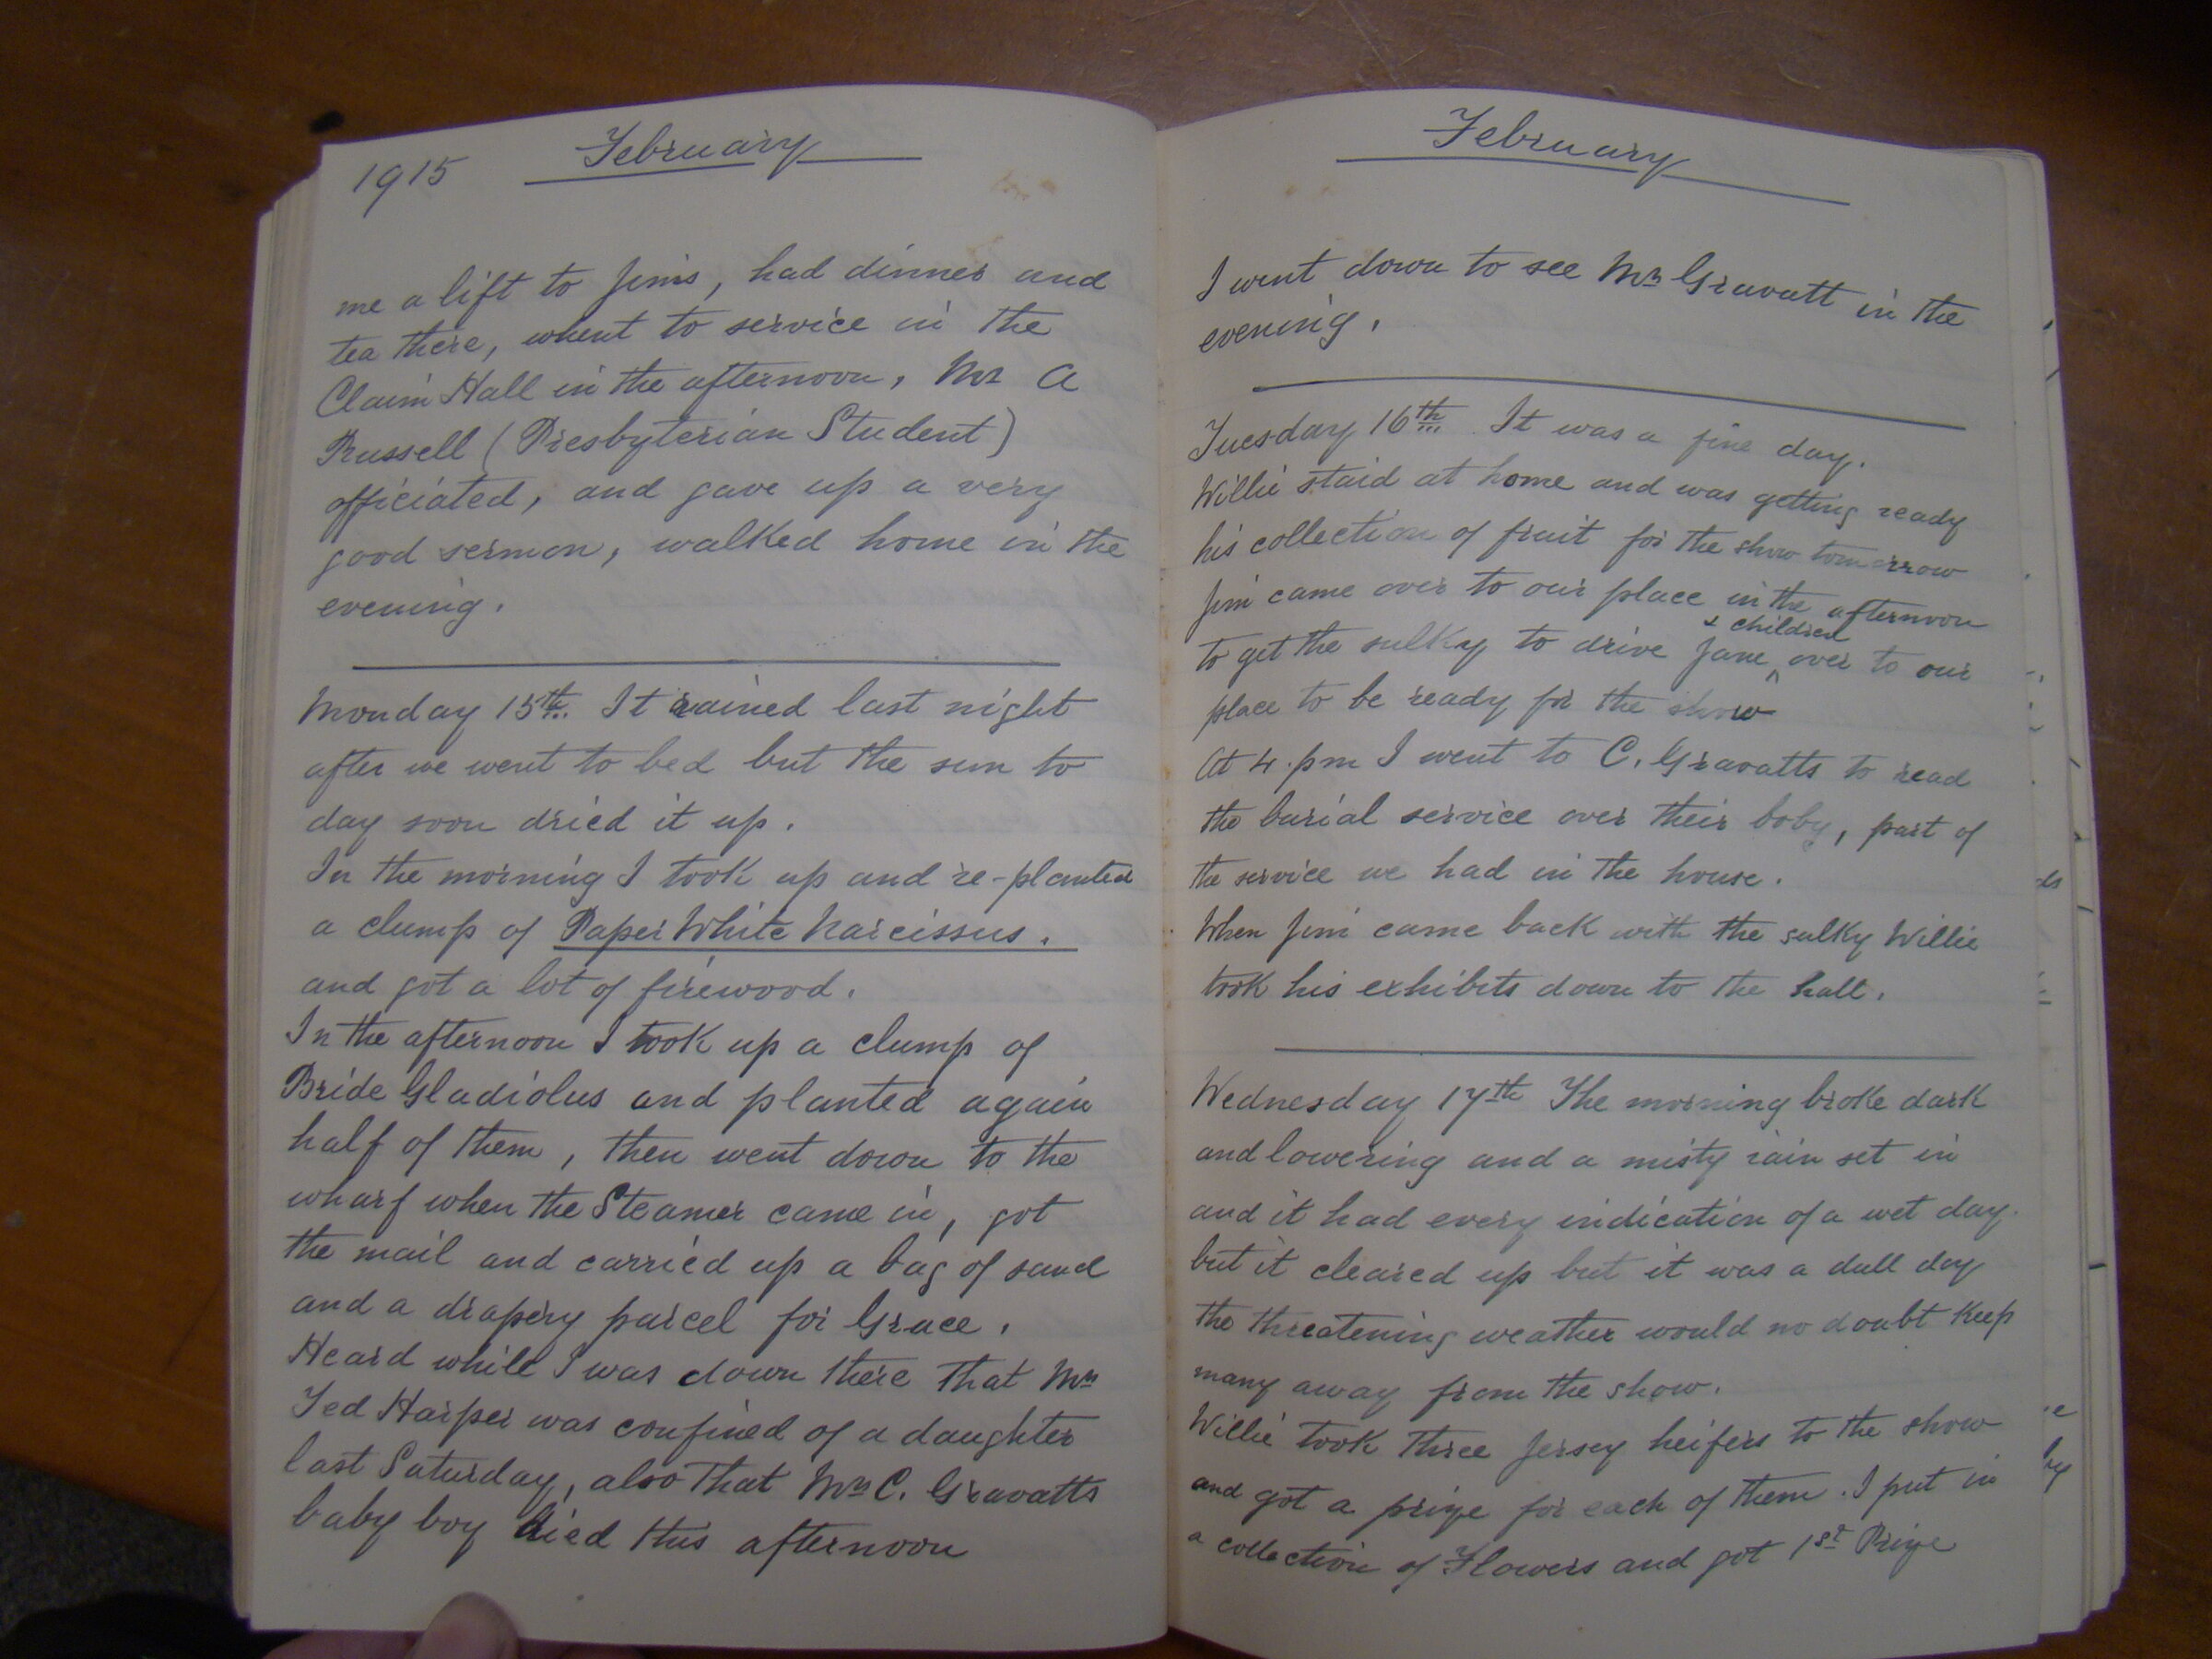 1915 February
me a lift to Jims, had dinner and
tea there, whent to service in the
Claim Hall in the afternoon, Mr A
Russell (Presbyterian Student)
officiated, and gave up a very
good sermon, walked home in the
evening.
Monday 15th. It rained last night
after we went to bed but the sun to
day soon dried it up.
In the morning I took up and re-planted
a clump of Paper White Narcissus.
and got a lot of firewood.
In the afternoon I took up a clump of
Bride Gladiolus and planted again
half of them, then went down to the
wharf when the Steamer came in, got
the mail and carried up a bag of sand
and a drapery parcel for Grace.
Heard while I was down there that Mrs
Ted Harper was confined of a daughter
last Saturday, also that Mrs C. Gravatts
baby boy died this afternoon
February
I went down to see Mrs Gravatt in the
evening.
Tuesday 16th It was a fine day.
Willie staid at home and was getting ready
his collection of fruit for the show tomorrow
Jim came over to our place in the afternoon
to get the sulky to drive Jane + children over to our
place to be ready for the show
At 4.pm I went to C. Gravatts to read
the burial service over their baby, part of
the service we had in the house.
When Jim came back with the sulky Willie
took his exhibits down to the hall.
Wednesday 17th The morning broke dark
and lowering and a misty rain set in
and it had every indication of a wet day.
but it cleared up but it was a dull day
the threatening weather would no doubt keep
many away from the show.
Willie took three Jersey heifers to the show
and got a prize for each of them. I put in
a collection of Flowers and got 1st Prize